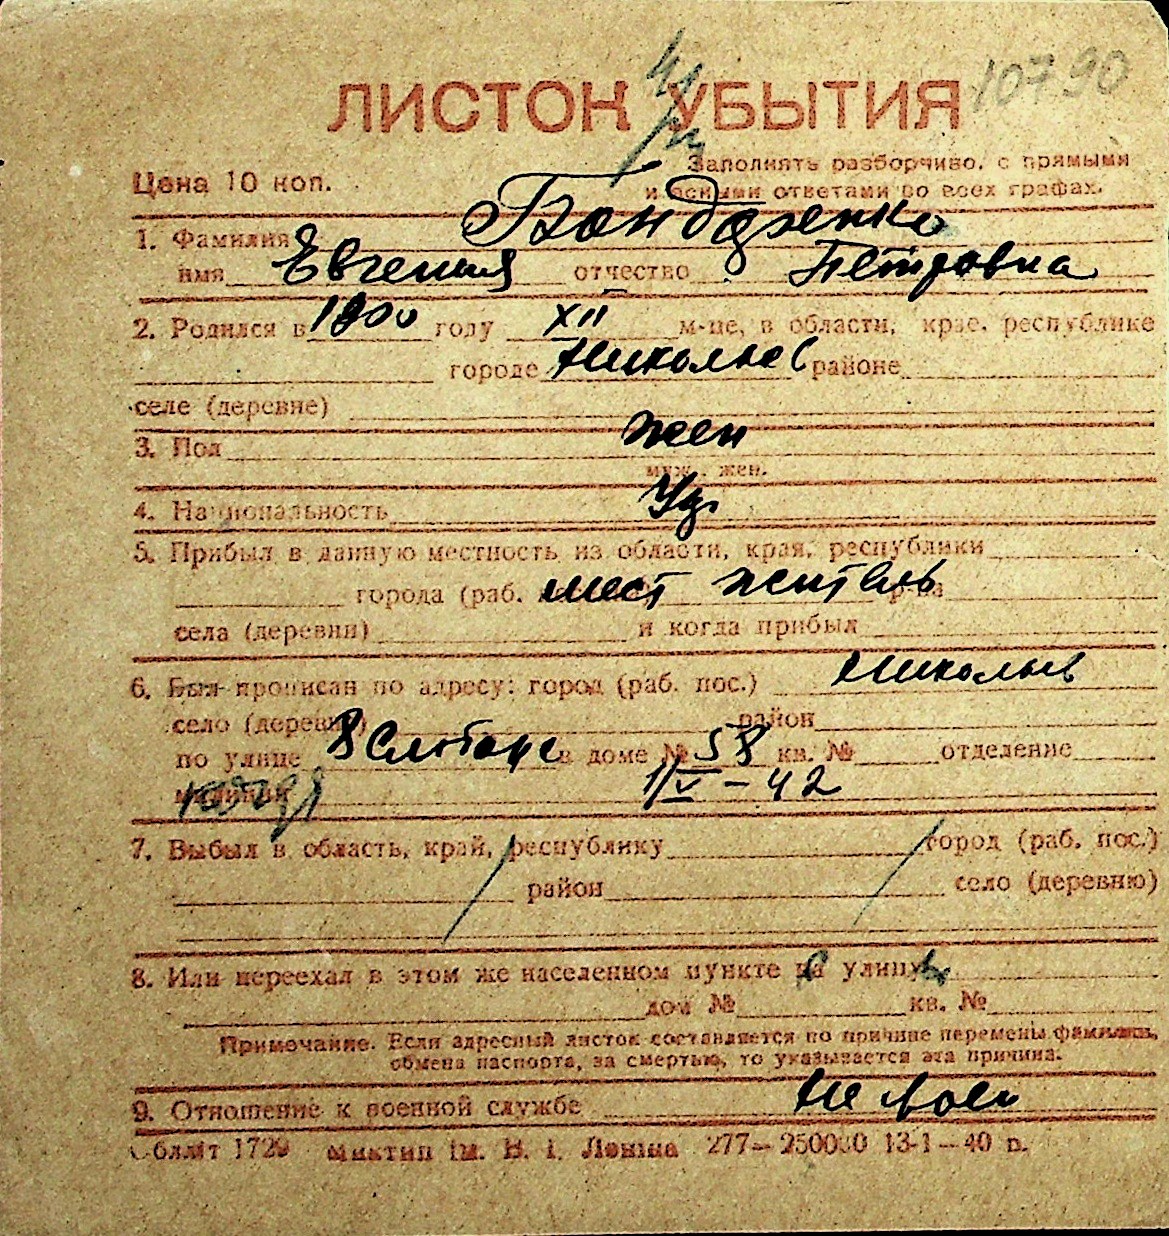 10790
ЛИСТОК УБЫТИЯ
Цена 10 коп.
Заполнять разборчиво, с прямыми
и ясными ответами во всех графах.
1. Фамилия Бондаренко
имя Евгения отчество Петровна
2. Родился в 1900 году XII м-це, в области, крае, республике
городе Николаев районе
селе (деревне)
3. Пол жен
муж., жен.
4. Национальность
5. Прибыл в данную местность из области, края, республики
города (раб. мест житель р-на
села (деревни) и когда прибыл
6. Был прописан по адресу: город (раб. пос.) Николаев
село (деревня) район
по улице в доме № 58 кв. № отделение
милиции 1/V – 42
7. Выбыл в область, край, республику город (раб. пос.)
район село (деревню)
8. Или переехал в этом же населенном пункте на улицу
дом № кв. №
Примечание. Если адресный листок составляется по причине перемены фамилии,
обмена паспорта, за смертью, то указывается эта причина.
9. Отношение к военной службе Не воен
Обллiт 1729 Миктип iм. В. I. Ленiна 277–250000 13-1–40 р.